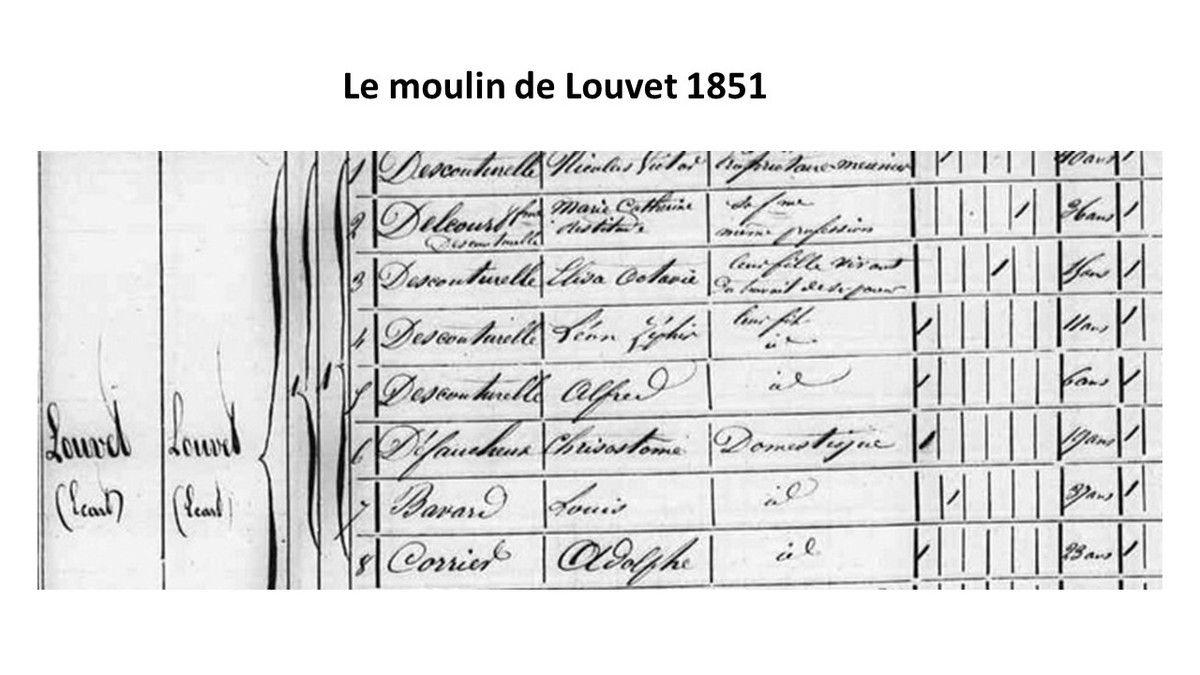 Le moulin de Louvet 1851
1 Descouturelle Nicolas Victor propriétaire meunier 40 ans 1
2 Delcourt fme Descouturelle Marie Catherine sa fme même profession 1 36 ans 1
3 Descouturelle Elisa Octavie leur fille vivant du travail de ses père 1 15 ans 1
4 Descouturelle Léon Zéphir leur fils id 1 11 ans 1
5 Descouturelle Alfred id 1 6 ans 1
Louvet Louvet 1 1
6 Défaucheux Chrisostome Domestique 1 19 ans 1
(Ecart) (Ecart)
7 Bavard Louis id 1 37 ans 1
8 Corrier Adolphe id 1 23 ans 1